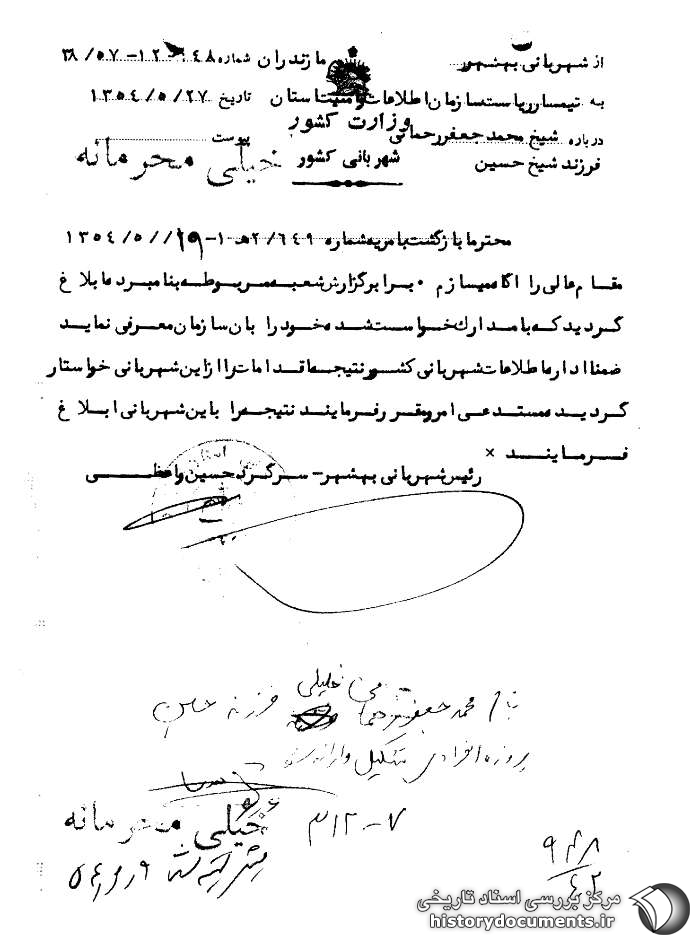 از شهربانی بهشهر مازندران شماره ۶۴۸-۱۲-۵۷/۳۸
به تیمسار ریاست سازمان اطلاعات و امنیت استان تاریخ ۱۳۵٤/۵/۲۷
وزارت کشور
درباره شیخ محمد جعفر رحمانی پیوست
فرزند شیخ حسین شهربانی کشور خیلی محرمانه
محترما بازگشت بامریه شماره ۲/٦٤۹هـ۱-۱۳۵٤/۵/۱۹
مقام عالی را آگاه میسازم ۰ برابر گزارش شعبه مربوطه بنامبرده ابلاغ
گردید که با مدارک خواسته شده خود را بان سازمان معرفی نماید
ضمنا اداره اطلاعات شهربانی کشور نتیجه اقدامات را از این شهربانی خواستار
گردیده مستدعی است امر و مقرر فرمایند نتیجه را باین شهربانی ابلاغ
فرمایند ×
رئیس شهربانی بهشهر – سرگرد حسین واعظی
بنام محمد جعفر رحمانی خلیلی فرزند حسین
پرونده انفرادی تشکیل و ارائه
خیلی محرمانه
۳۱۲-۷
۹۴۸
۴۲
مرکز بررسی اسناد تاریخی
historydocuments.ir